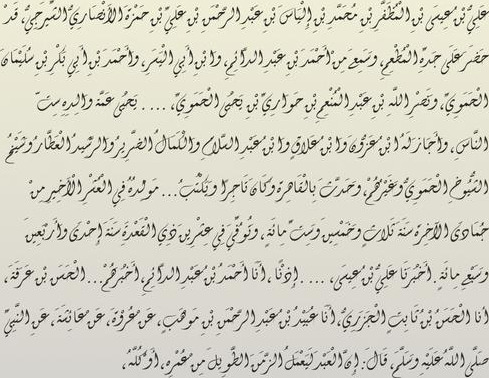 عَلِيُّ بْنُ عِيسَى بْنِ الْمُظَفَّرِ بْنِ مُحَمَّدِ بْنِ إِلْيَاسَ بْنِ عَبْدِ الرَّحْمَنِ بْنِ عَلِيِّ بْنِ حَمْزَةَ الْأَنْصَارِيُّ الشِّيرَجِيُّ، قَدْ
حَضَرَ عَلَى جَدِّهِ الْمُطْعِمِ، وَسَمِعَ مِنْ أَحْمَدَ بْنِ عَبْدِ الدَّائِمِ، وَابْنِ أَبِي الْيُسْرِ، وَأَحْمَدَ بْنِ أَبِي بَكْرِ بْنِ سُلَيْمَانَ
الْحَمَوِيِّ، وَنَصْرِ اللَّهِ بْنِ عَبْدِ الْمُنْعِمِ بْنِ حَوَارِيِّ بْنِ يَحْيَى الْحَمَوِيِّ، .... يَحْيَى عَمَّةِ وَالِدِهِ سِتِّ
النَّاسِ، وَأَجَازَ لَهُ ابْنُ عَزُّونَ وَابْنُ عَلَاقٍ وَابْنُ عَبْدِ السَّلَامِ وَالْكَمَالُ الضَّرِيرُ وَالرَّشِيدُ الْعَطَّارُ وَشَيْخُ
الشُّيُوخِ الْحَمَوِيُّ وَغَيْرُهُمْ، وَحَدَّثَ بِالْقَاهِرَةِ وَكَانَ تَاجِرًا وَيَكْتُبُ... مَوْلِدُهُ فِي الْعُشْرِ الْأَخِيرِ مِنْ
جُمَادَى الْآخِرَةِ سَنَةَ ثَلَاثٍ وَخَمْسِينَ وَسِتِّ مِائَةٍ، وَتُوُفِّيَ فِي عِشْرِينَ ذِي الْقَعْدَةِ سَنَةَ إِحْدَى وَأَرْبَعِينَ
وَسَبْعِ مِائَةٍ. أَخْبَرَنَا عَلِيُّ بْنُ عِيسَى، .... إِذْنًا، أَنَا أَحْمَدُ بْنُ عَبْدِ الدَّائِمِ، أَخْبَرَهُمْ... الْحَسَنُ بْنُ عَرَفَةَ،
أنا الْحَسَنُ بْنُ ثَابِتٍ الْجَزَرِيُّ، أَنَا عُبَيْدُ بْنُ عَبْدِ الرَّحْمَنِ بْنِ مَوْهَبٍ، عَنْ عُرْوَةَ، عَنْ عَائِشَةَ، عَنِ النَّبِيِّ
صَلَّى اللَّهُ عَلَيْهِ وَسَلَّمَ، قَالَ: إِنَّ الْعَبْدَ لَيَعْمَلُ الزَّمَنَ الطَّوِيلَ مِنْ عُمُرِهِ، أَوْ كُلَّهُ،